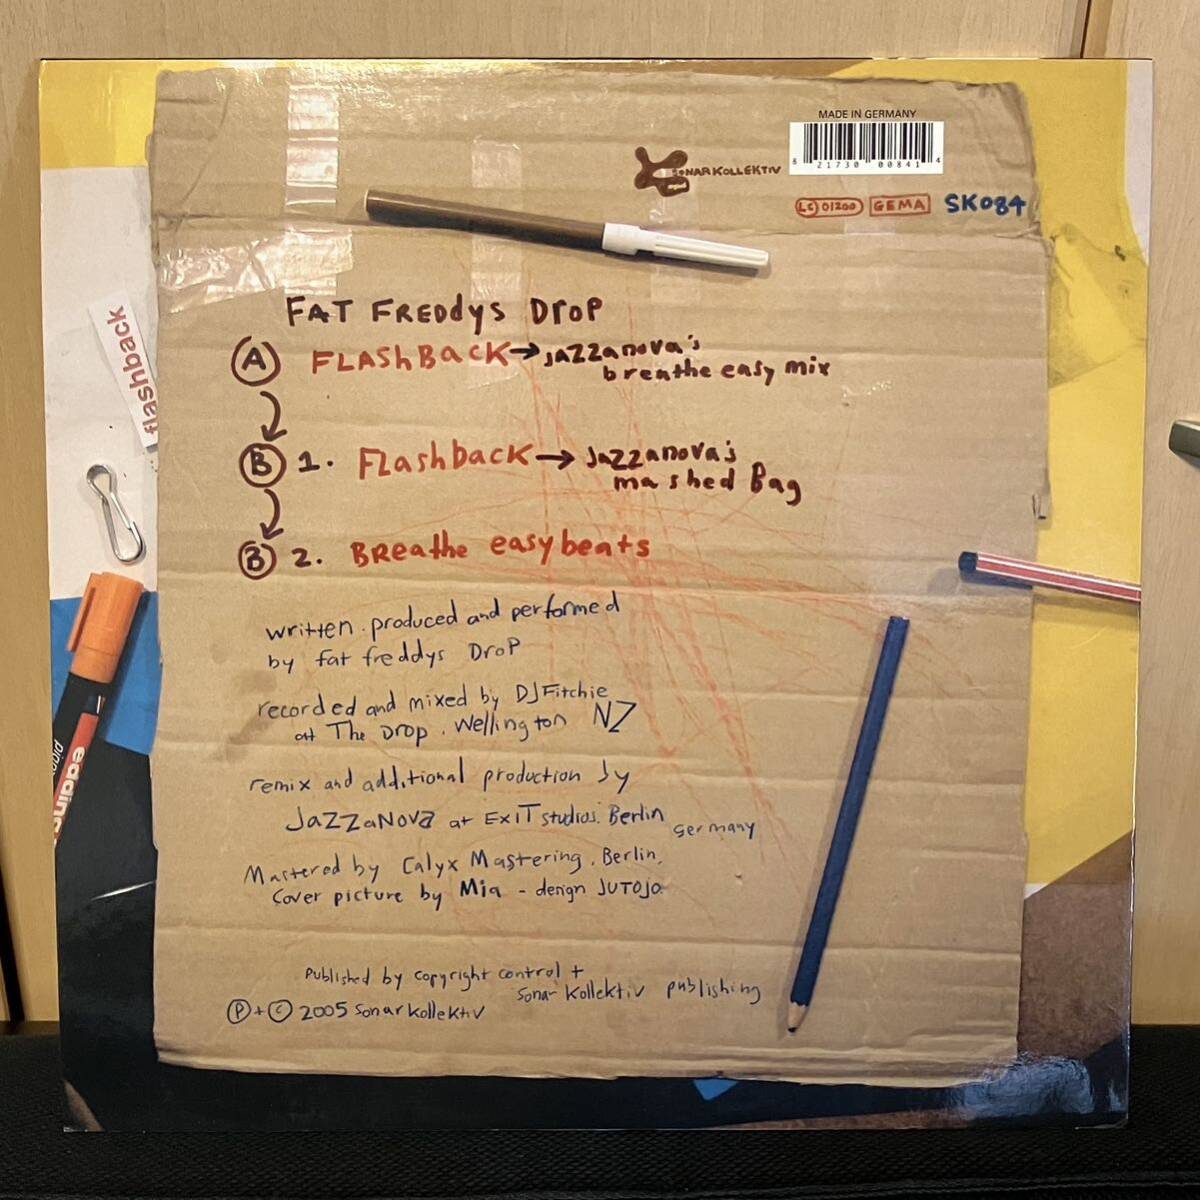 MADE IN GERMANY
8 21730 00841 4
SONARKOLLEKTIV
LC 01200 GEMA SK084
FAT FREDDYS DROP
A FLASHBACK → JAZZANOVA'S
breathe easy mix
flashback
B 1. Flashback → JAZZANOVA'S
mashed Bag
B 2. BReathe easybeats
written. produced and performed
by fat freddys Drop
recorded and mixed by DJ Fitchie
at The Drop. Wellington NZ
edding
remix and additional production by
JaZZaNova at EXIT studios. Berlin
Germany
Mastered by Calyx Mastering. Berlin.
Cover picture by Mia - design JUTOJO.
Published by copyright control +
Sonar Kollektiv publishing
P + C 2005 Sonarkollektiv